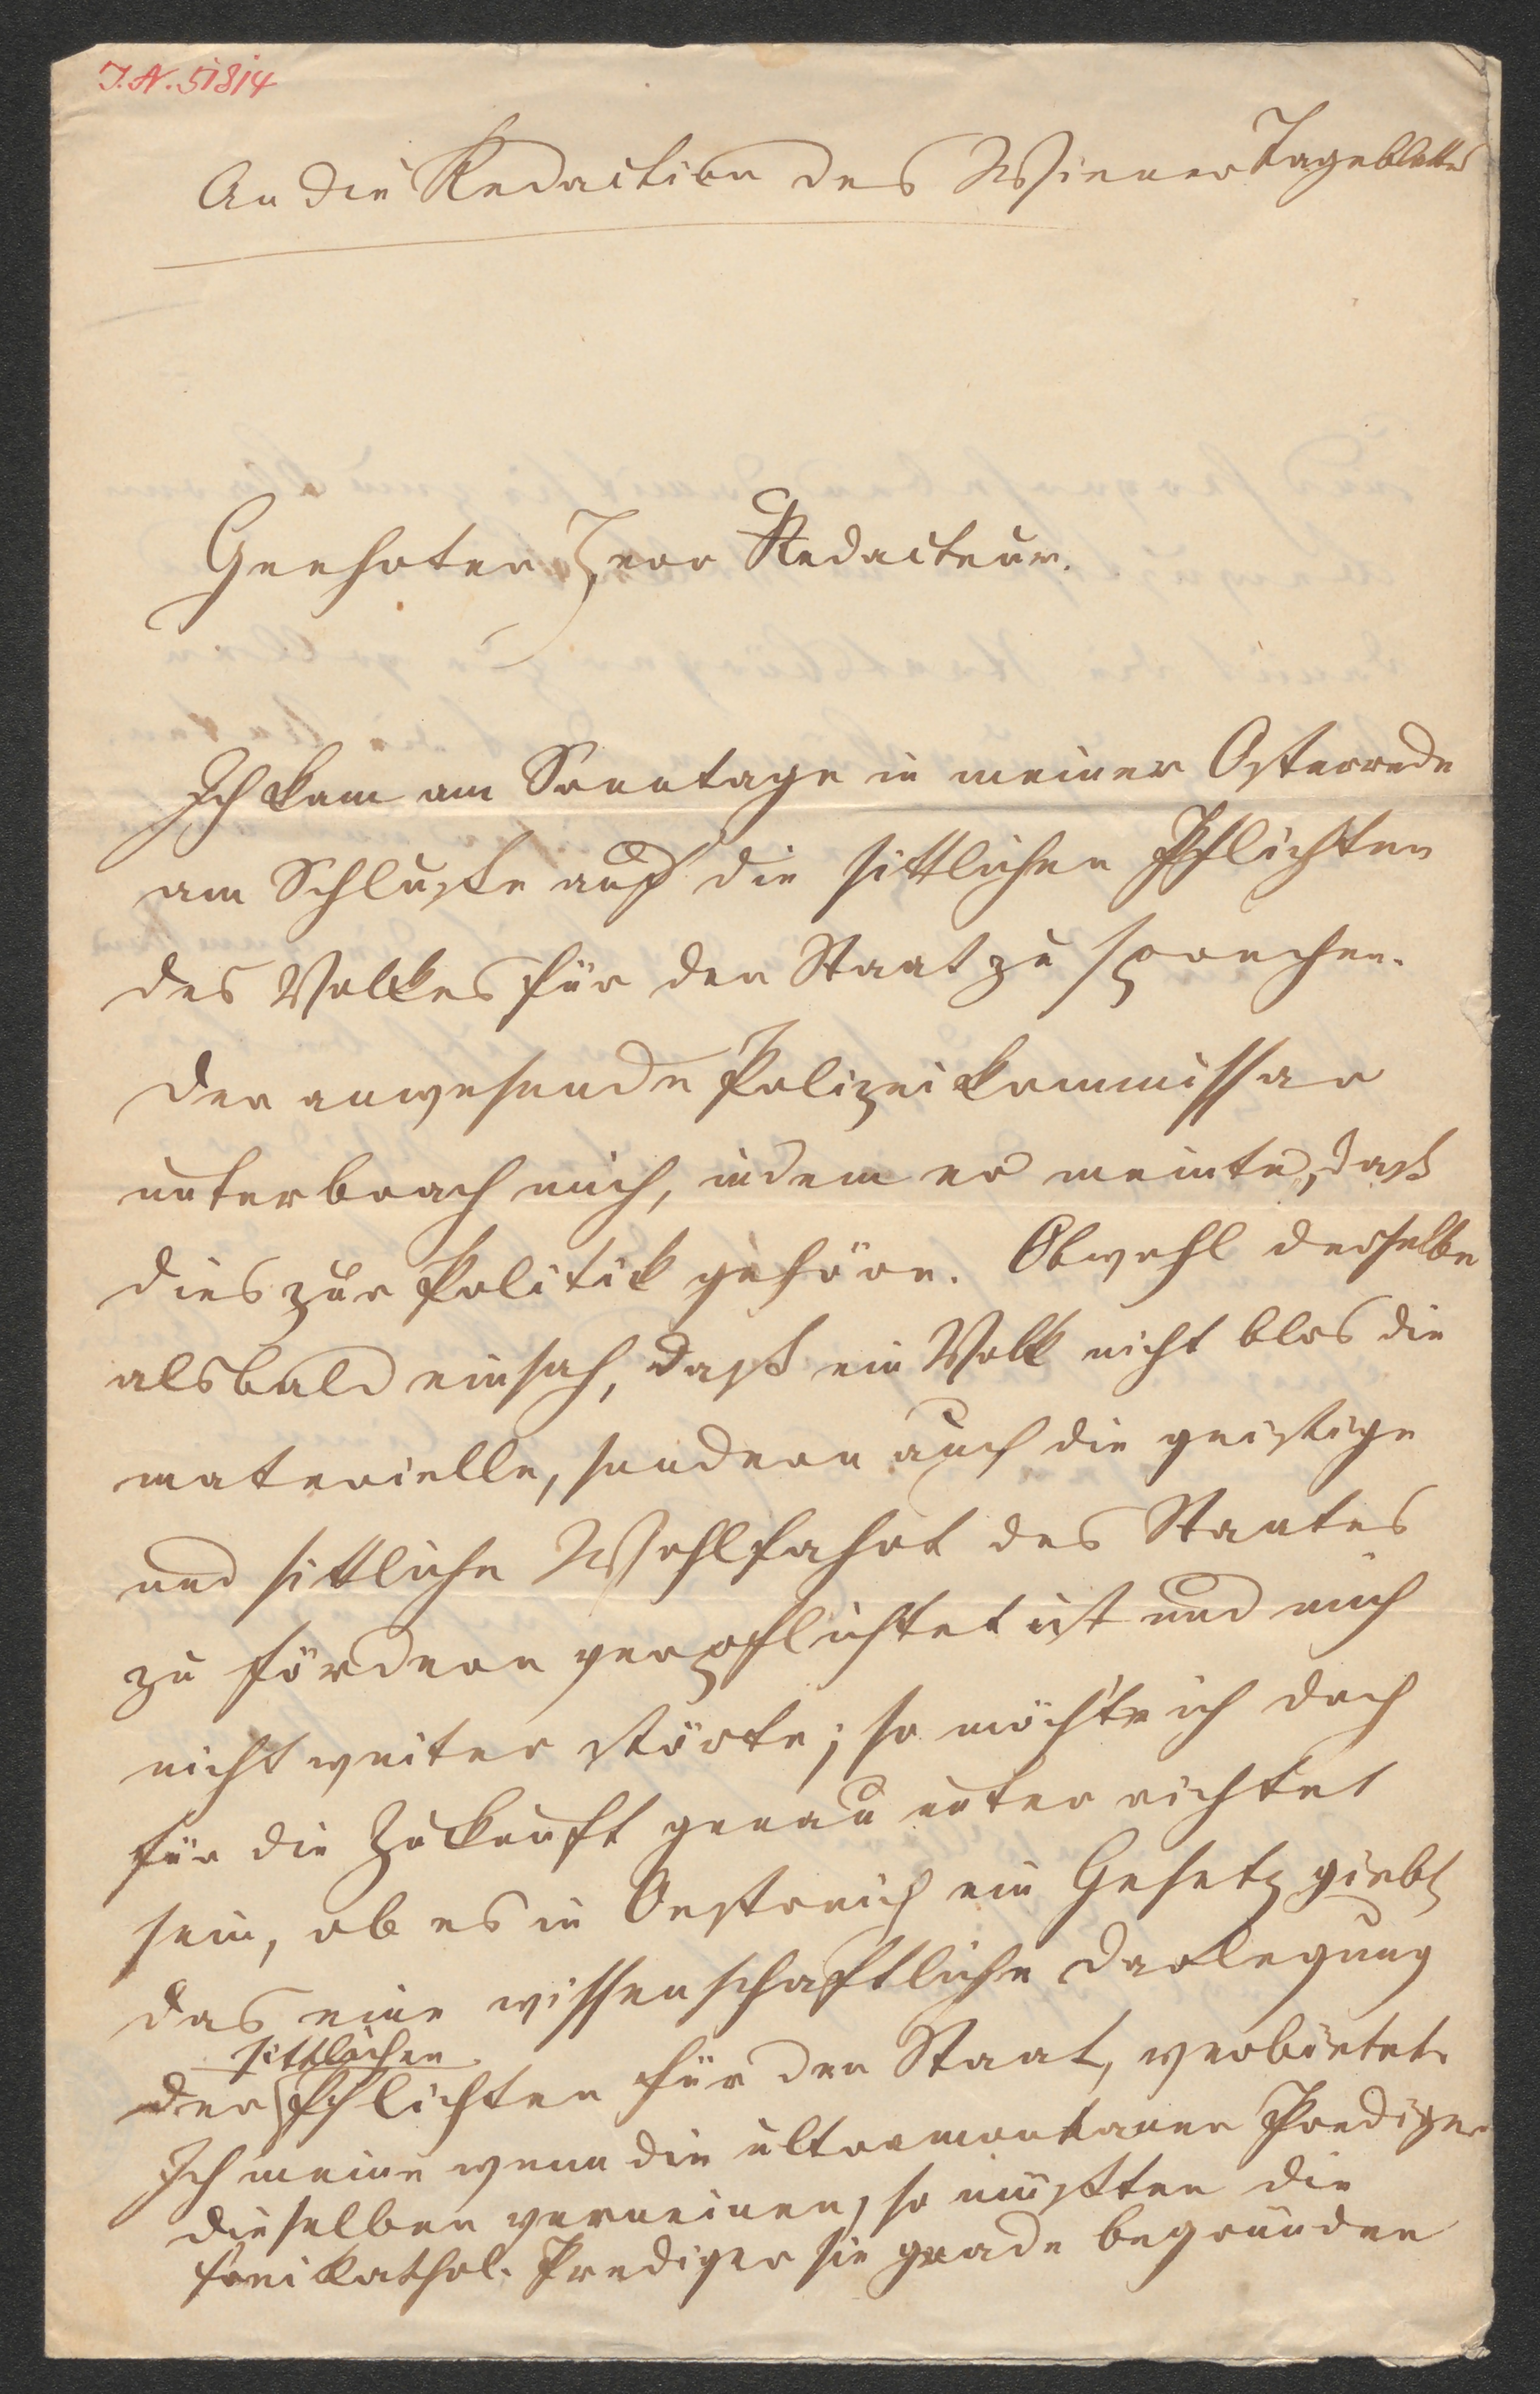 J.N. 51814
An die Redaction des Wiener Tageblattes
Geehrter Herr Redacteur.
Ich kam am Sonntage in meiner Osterrede
am Schluße auf die sittlichen Pflichten
des Volkes für den Staat zu sprechen.
Der anwesende Polizeikommissar
unterbrach mich, indem er meinte, daß
dies zur Politik gehöre. Obwohl derselbe
alsbald einsah, daß ein Volk nicht blos die
materielle, sondern auch die geistige
und sittliche Wohlfahrt des Staates
zu fördern verpflichtet ist und mich
nicht weiter störte; so möchte ich doch
für die Zukunft genau unterrichtet
sein, ob es in Oestreich ein Gesetz giebt
das eine wissenschaftliche Darlegung
sittlichen
der Pflichten für den Staat, verbietet.
Ich meine wenn die ultramontanen Prediger
dieselben verneinen, so müßten die
freikathol. Prediger sie grade begründen